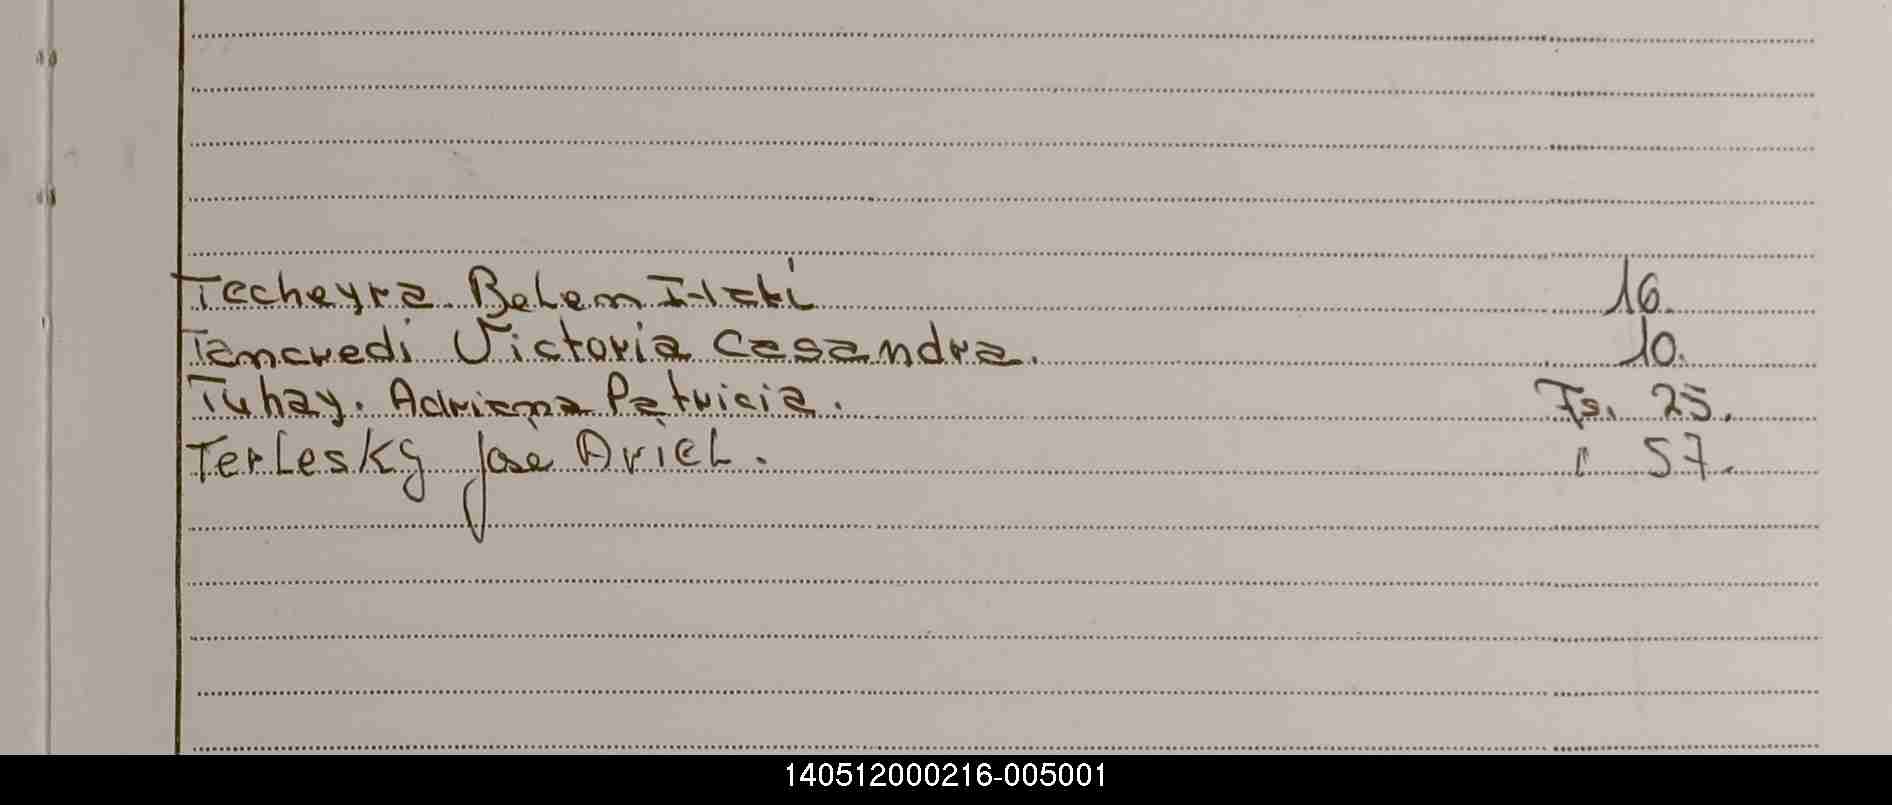 Techeyra Belem Itatí 16.
Tancredi Victoria Casandra. 10.
Tuhay. Adriana Patricia. Fs. 25.
Terlesky José Ariel. " 57.
140512000216-005001